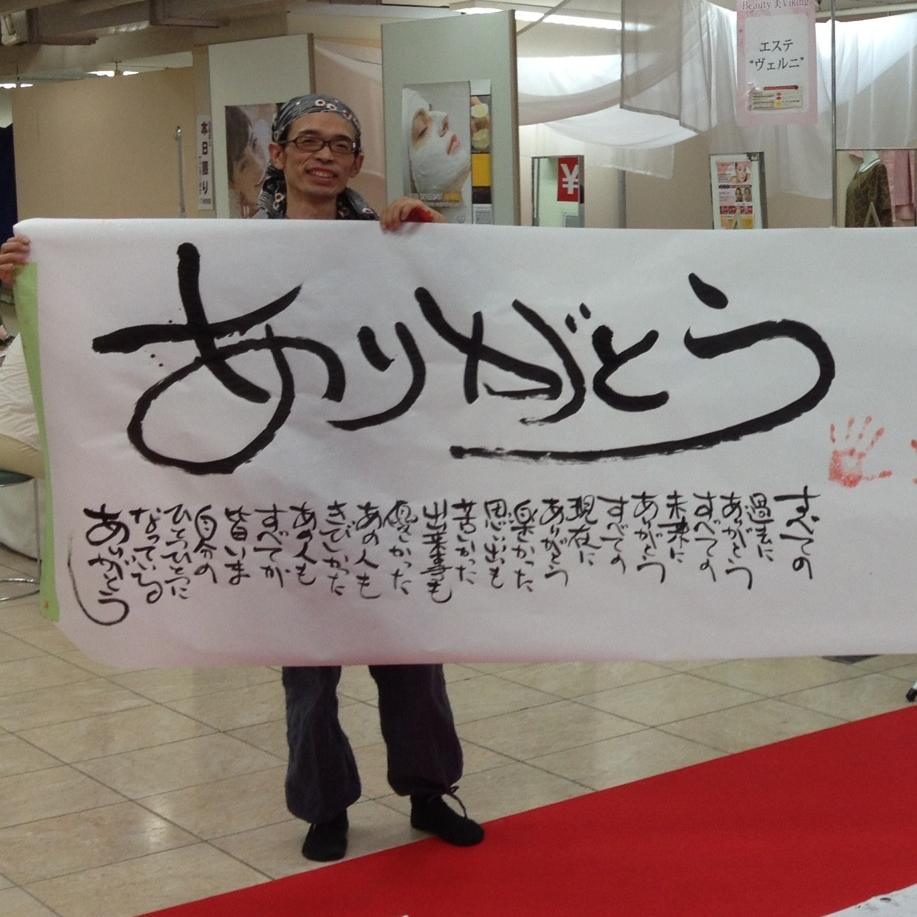 Beauty 美Viking
エステ
"ヴェルニ"
¥
ありがとう
すべての
過去に
ありがとう
すべての
未来に
ありがとう
すべての
現在に
ありがとう
楽しかった
思い出も
苦しかった
出来事も
優しかった
あの人も
きびしかった
あの人も
すべてが
皆いま
自分の
ひとつひとつに
なっている
ありがとう